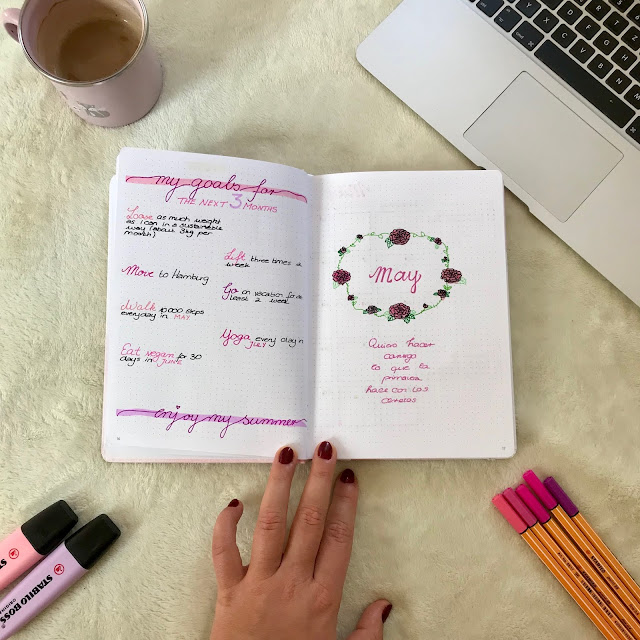 my goals for
THE NEXT 3 MONTHS
Loose as much weight
as I can in a sustainable
way (about 3kg per
month)
Lift three times a
week
Move to Hamburg
Go on vacation for at
least a week
Walk 10 000 steps
everyday in MAY
Yoga every day in
JULY
Eat vegan for 30
days in JUNE
enjoy my summer
May
Quiero hacer
contigo
lo que la
primavera
hace con los
cerezos
STABILO BOSS
ORIGINAL
STABILO BOSS